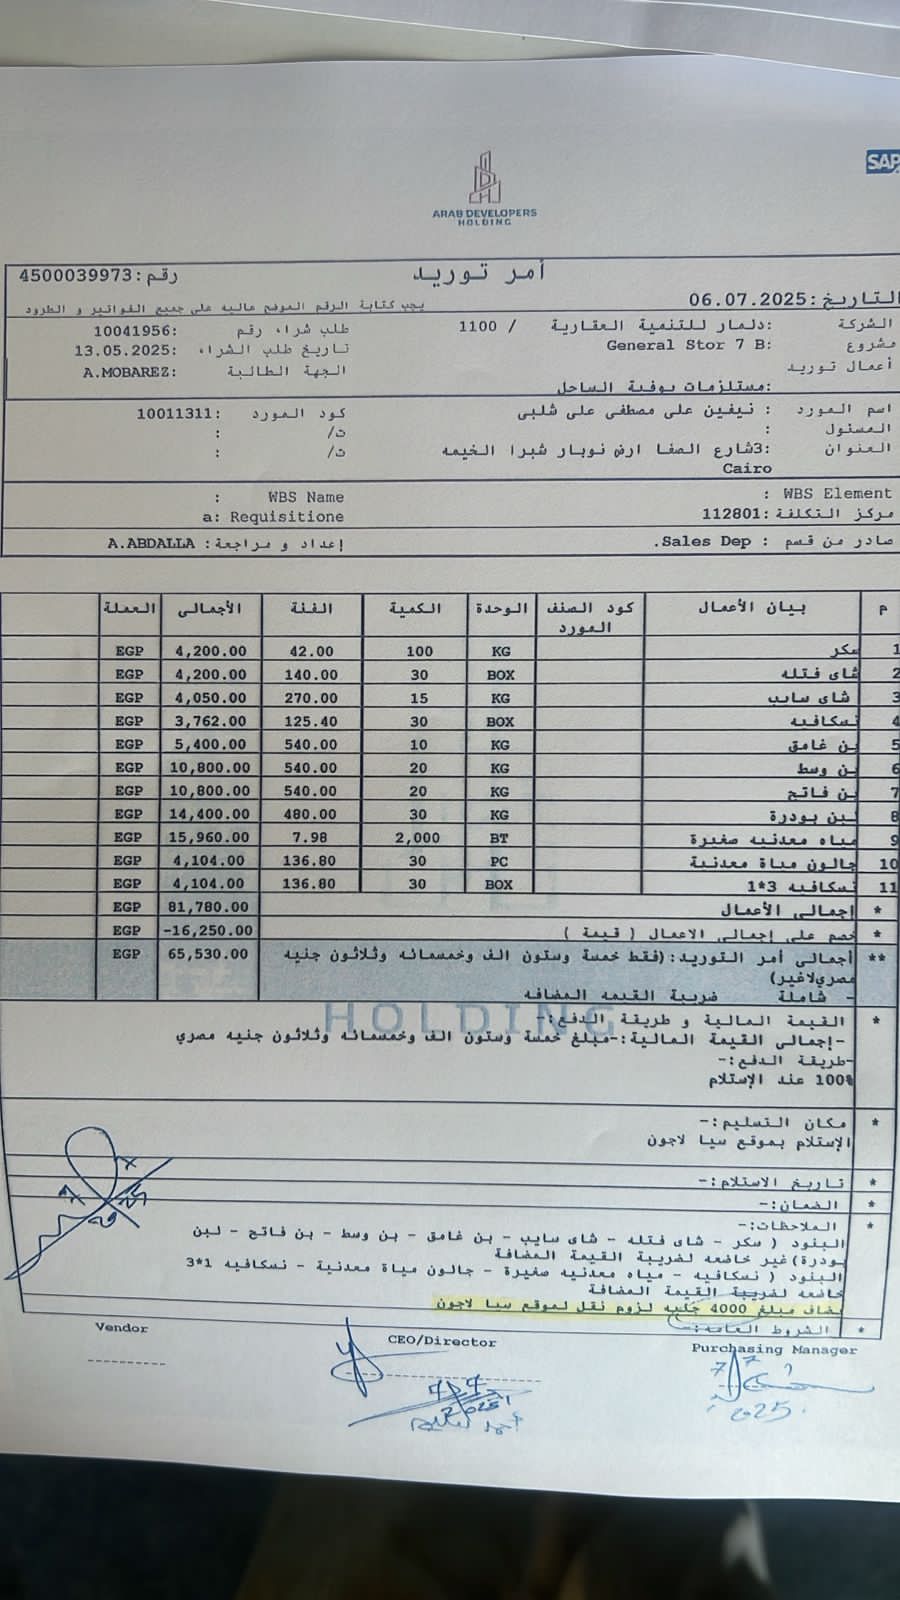 SAP
ARAB DEVELOPERS
HOLDING
أمر توريد
رقم:4500039973
التاريخ:06.07.2025
يجب كتابة الرقم الموضح عاليه على جميع الفواتير و الطرود
الشركة :دلمار للتنمية العقارية / 1100
طلب شراء رقم :10041956
مشروع :General Stor 7 B
تاريخ طلب الشراء :13.05.2025
أعمال توريد
الجهة الطالبة :A.MOBAREZ
:مستلزمات بوفية الساحل
اسم المورد : نيفين على مصطفى على شلبى
كود المورد :10011311
المسئول :
ت/ :
العنوان :3شارع الصفا ارض نوبار شبرا الخيمه
ت/ :
Cairo
WBS Element :
WBS Name :
مركز التكلفة :112801
a: Requisitione
صادر من قسم : Sales Dep.
إعداد و مراجعة: A.ABDALLA
م بيان الأعمال كود الصنف المورد الوحدة الكمية الفئة الأجمالى العملة
1 سكر KG 100 42.00 4,200.00 EGP
2 شاى فتله BOX 30 140.00 4,200.00 EGP
3 شاى سايب KG 15 270.00 4,050.00 EGP
4 نسكافيه BOX 30 125.40 3,762.00 EGP
5 بن غامق KG 10 540.00 5,400.00 EGP
6 بن وسط KG 20 540.00 10,800.00 EGP
7 بن فاتح KG 20 540.00 10,800.00 EGP
8 لبن بودرة KG 30 480.00 14,400.00 EGP
9 مياه معدنيه صغيرة BT 2,000 7.98 15,960.00 EGP
10 جالون مياة معدنية PC 30 136.80 4,104.00 EGP
11 نسكافيه 3*1 BOX 30 136.80 4,104.00 EGP
* إجمالى الأعمال 81,780.00 EGP
* خصم على إجمالى الاعمال ( قيمة ) 16,250.00- EGP
** أجمالى أمر التوريد:(فقط خمسة وستون الف وخمسمائه وثلاثون جنيه 65,530.00 EGP
مصري لاغير)
- شاملة ضريبة القيمه المضافه
HOLDING
* القيمة المالية و طريقة الدفع:-
-إجمالى القيمة المالية:-مبلغ خمسة وستون الف وخمسمائه وثلاثون جنيه مصري
-طريقة الدفع:-
100% عند الإستلام
* مكان التسليم:-
الإستلام بموقع سيا لاجون
* تاريخ الاستلام:-
* الضمان:-
* الملاحظات:-
البنود ( سكر - شاى فتله - شاى سايب - بن غامق - بن وسط - بن فاتح - لبن
بودرة)غير خاضعه لضريبة القيمة المضافة
البنود ( نسكافيه - مياه معدنيه صغيرة - جالون مياة معدنية - نسكافيه 1*3
خاضعه لضريبة القيمة المضافة
يضاف مبلغ 4000 جنيه لزوم نقل لموقع سيا لاجون
* الشروط العامه:-
Purchasing Manager
CEO/Director
Vendor
7/7
2025